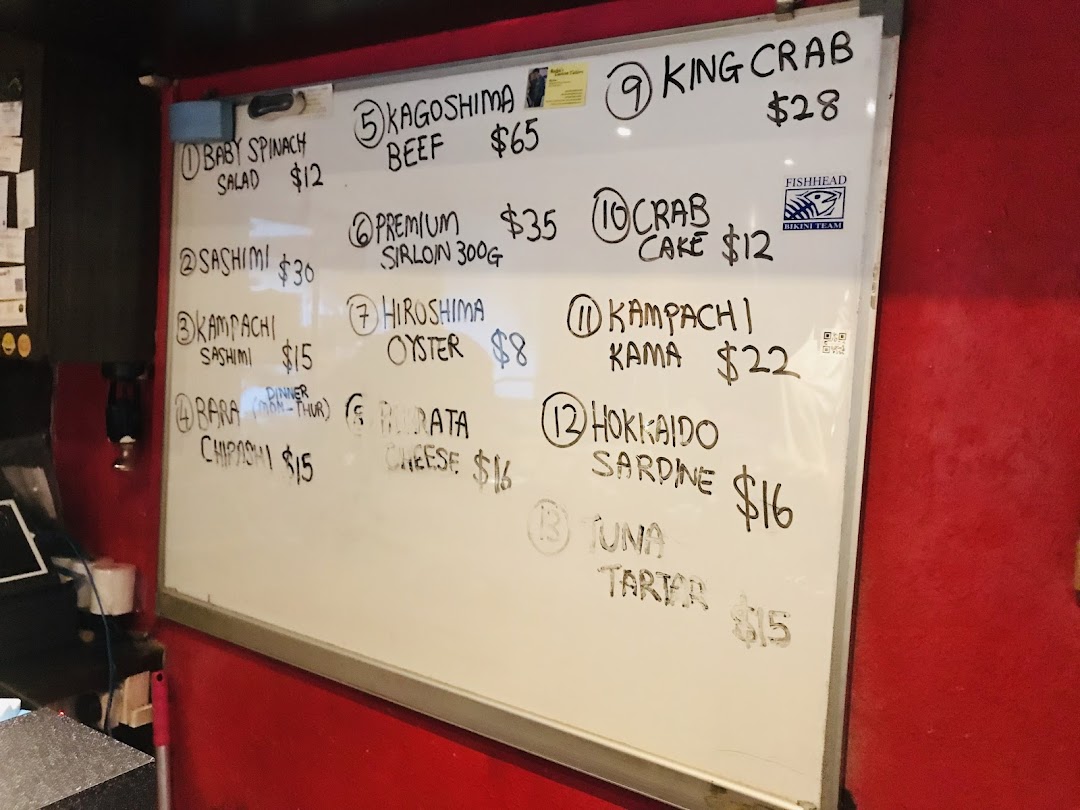 ① BABY SPINACH
SALAD $12
② SASHIMI $30
③ KAMPACHI
SASHIMI $15
④ BARA DINNER
(MON-THUR)
CHIRASHI $15
⑤ KAGOSHIMA
BEEF $65
⑥ PREMIUM $35
SIRLOIN 300G
⑦ HIROSHIMA
OYSTER $8
⑧ BURRATA
CHEESE $16
⑨ KING CRAB
$28
⑩ CRAB
CAKE $12
FISHHEAD
BIKINI TEAM
⑪ KAMPACHI
KAMA $22
⑫ HOKKAIDO
SARDINE $16
⑬ TUNA
TARTAR
$15